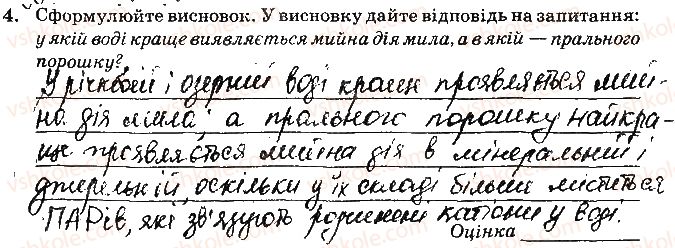 4. Сформулюйте висновок. У висновку дайте відповідь на запитання:
у якій воді краще виявляється мийна дія мила, а в якій — прального
порошку?
У річковій і озерній воді краще проявляється мий-
на дія мила, а прального порошку найкра-
ще проявляється мийна дія в мінеральній і
джерельній, оскільки у їх складі більше міститься
ПАРів, які зв'язують розчинені катіони у воді.
Оцінка